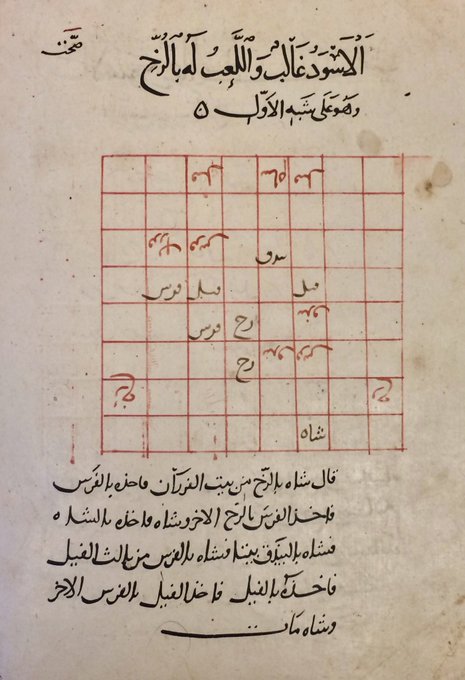 صح
الأسود غالب واللعب له بالرخ
وهو على شبه الأول ٥
فيل شاه فيل
فرزان فرس
بيدق
فرس فيل فيل
بيدق
فرس رخ
رخ بيدق فرس
رخ رخ
شاه
قال شاه بالرخ من بيت الفرزان فاخذه بالفرس
فاخذ الفرس بالرخ الاخر وشاه فاخذه بالشاه
فشاه بالبيدق فشاه بالفرس من ثالث الفيل
فاخذه بالفيل فاخذ الفيل بالفرس الاخر
وشاه مات